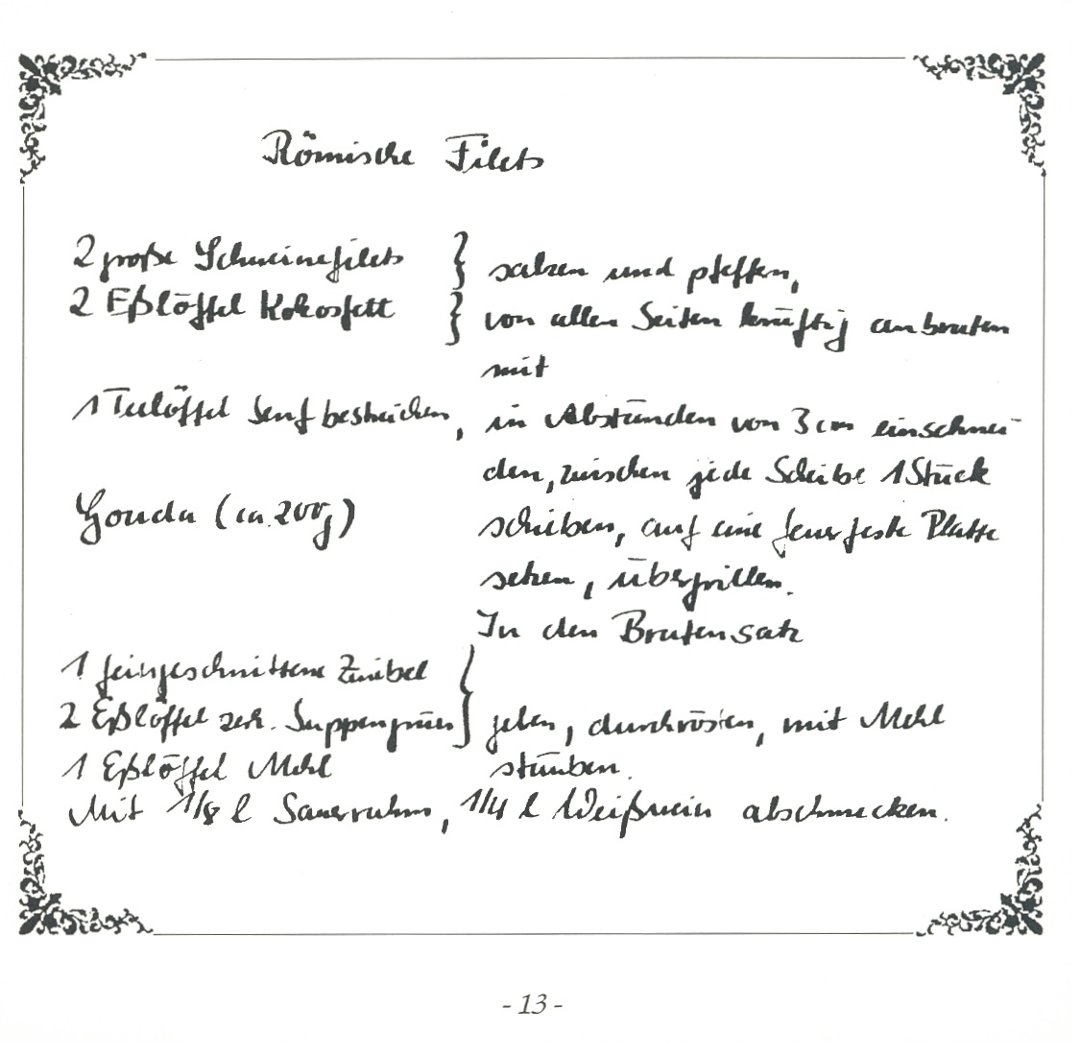 Römische Filets
2 große Schweinefilets } salzen und pfeffern,
2 Eßlöffel Kokosfett } von allen Seiten kräftig anbraten
mit
1 Teelöffel Senf bestreichen, in Abständen von 3 cm einschnei-
den, zwischen jede Scheibe 1 Stück
Gouda (ca. 200g) schieben, auf eine feuerfeste Platte
setzen, übergrillen.
In den Bratensatz
1 feingeschnittene Zwiebel }
2 Eßlöffel zerk. Suppengrün } geben, durchrösten, mit Mehl
1 Eßlöffel Mehl stäuben.
Mit 1/8 l Sauerrahm, 1/4 l Weißwein abschmecken.
- 13 -